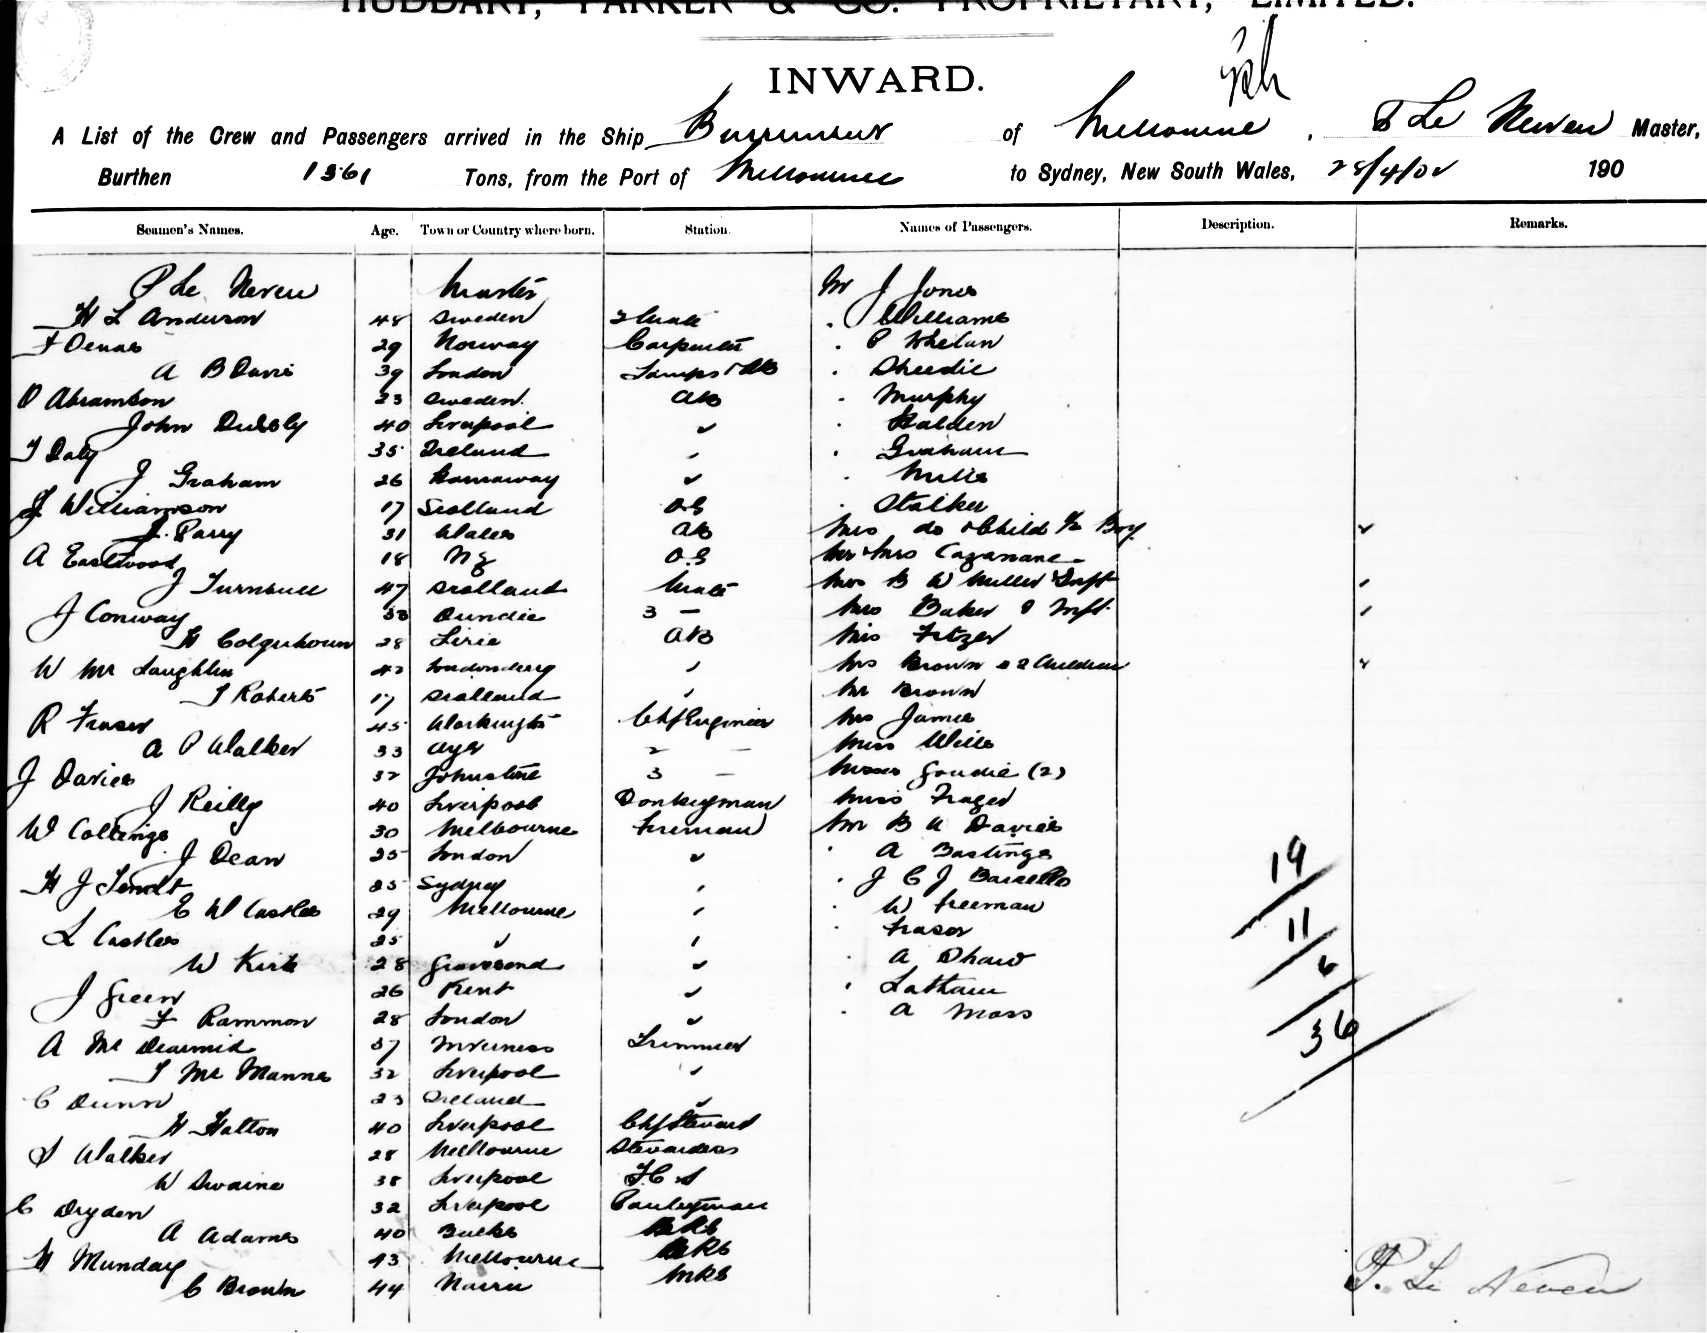 HUDDART, PARKER & CO. PROPRIETARY, LIMITED.
INWARD.
A List of the Crew and Passengers arrived in the Ship Burrumbeet of Melbourne, P Le Neveu Master,
Burthen 1361 Tons, from the Port of Melbourne to Sydney, New South Wales, 28/4/02 190
Seamen's Names. Age. Town or Country where born. Station. Names of Passengers. Description. Remarks.
P Le Neveu Master Mr J Jones
H L Anderson 48 Sweden 2 Mate . Williams
F Denas 29 Norway Carpenter . P Whelan
A B Davis 39 London Lamps & AB . Sheedie
O Abramson 23 Sweden AB . Murphy
John Dubbly 40 Liverpool " . Halden
T Daly 35 Ireland " . Graham
J Graham 26 " . Mills
J Williamson 17 Scotland OS . Stalker
J. Parry 31 Wales AB Mrs do & Child Boy
A Eastwood 18 NZ O.S Mr & Mrs
J Turnbull 47 Scotland Mate Mrs B W Miller & Inft
J Conway 33 Dundee 3 — Mrs Baker & Inft
H Colquhoun 28 AB Mrs Fitzer
W Mc Laughlin 42 Londonderry " Mrs Brown & 2 Children
T Roberts 17 Scotland " Mr Brown
R Fraser 45 Workington Chf Engineer Mrs James
A P Walker 33 Ayr 2 — Miss Wills
J Davies 32 Johnstone 3 — Misses Goudie (2)
J Reilly 40 Liverpool Donkeyman Miss Frazer
W Collings 30 Melbourne Fireman Mr B A Davies
J Dean 25 London " . A Bastings
H J Tendt 25 Sydney " . J C J
E W Castles 29 Melbourne " . W Freeman
L Castles 25 " " . Fraser
W Kirk 28 Gravesend " . A Shaw
J Green 26 Kent " . Latham
F Rammon 28 London " . A Moss
A Mc Dearmid 37 Inverness Trimmer
T Mc Manna 32 Liverpool "
C Dunn 23 Ireland "
H Halton 40 Liverpool Chf Steward
S Walker 28 Melbourne Stewardess
W Swaine 38 Liverpool F.C.S
C Dryden 32 Liverpool Pantryman
A Adams 40 Bucks BRS
H Munday 43 Melbourne BRS
C Brown 44 Nairn MRS
19
11
6
36
P. Le Neveu